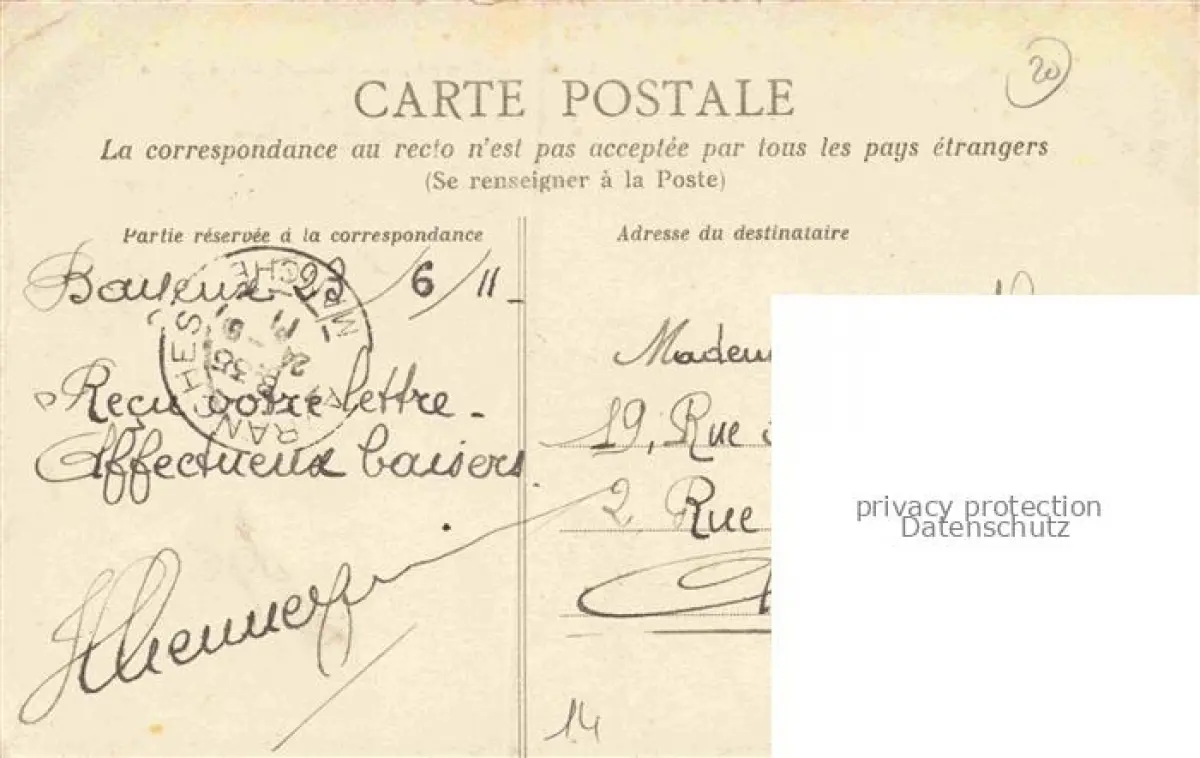 20
CARTE POSTALE
La correspondance au recto n'est pas acceptée par tous les pays étrangers
(Se renseigner à la Poste)
Partie réservée à la correspondance
Bayeux 23/6/11_
Reçu votre lettre_
Affectueux baisers.
Adresse du destinataire
19, Rue
2, Rue
14
privacy protection
Datenschutz